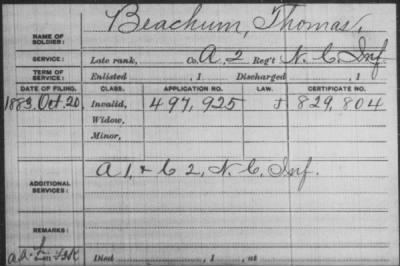 NAME OF SOLDIER: Beachum, Thomas,
SERVICE: Late rank, Co. A, 2 Reg't N. C. Inf.
TERM OF SERVICE: Enlisted , 1 Discharged , 1
DATE OF FILING. CLASS. APPLICATION NO. LAW. CERTIFICATE NO.
1883, Oct. 20. Invalid, 497,925 J 829,804
Widow,
Minor,
ADDITIONAL SERVICES: A 1, & C 2, N. C. Inf.
REMARKS:
Died , 1 , at